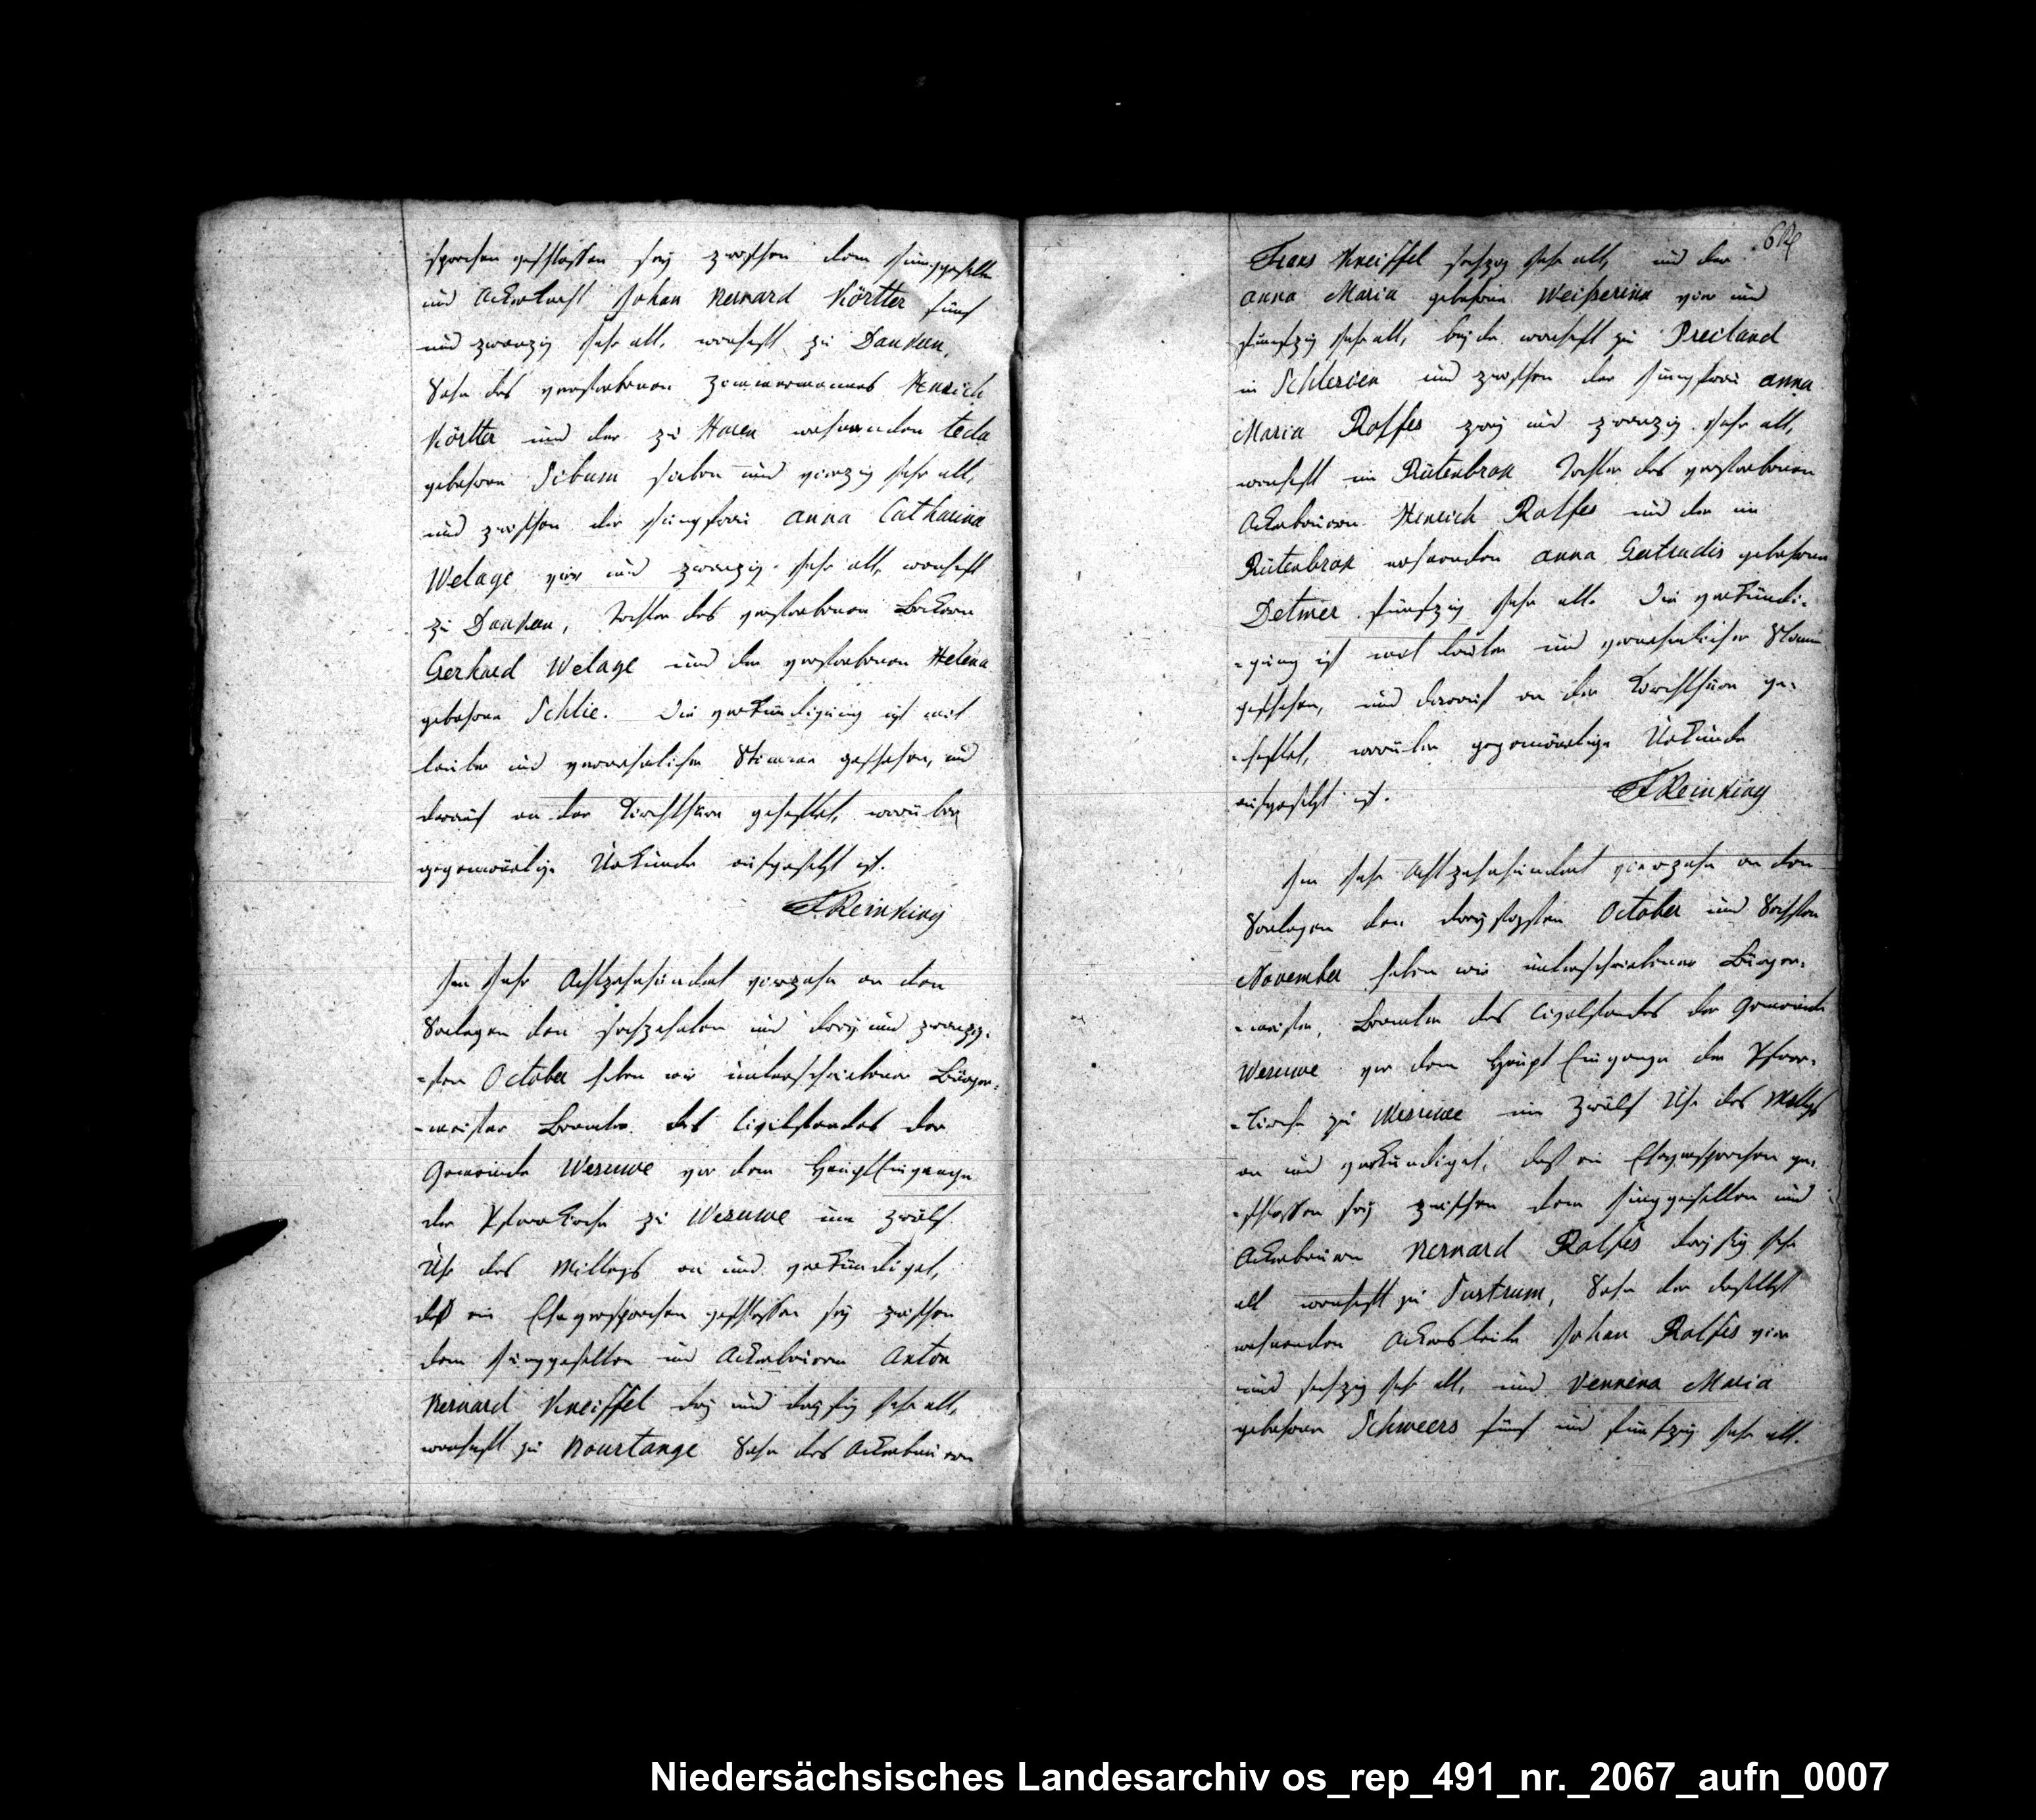 sprechen geschlossen sey zwischen dem Junggesellen
und Ackerknecht Johan Bernard Körtter fünf
und zwanzig Jahr alt, wonhaft zu Dankern,
Sohn des verstorbenen Zimmermannes Henrich
Körtter und der zu Haren wohnenden Tecla
gebohren Sibum sieben und vierzig Jahr alt,
und zwischen der Jungfrau Anna Catharina
Welage vier und zwanzig Jahr alt, wonhaft
zu Dankern, Tochter des verstorbenen
Gerhard Welage und der verstorbenen Helena
gebohren Schlie. Die verkündigung ist mit
lauter und vernehmlicher Stimme geschehen, und
darauf an der Kirchthüre geheftet, worüber
gegenwärtige Urkunde aufgesetzt ist.
F Reinking
Im Jahr Achtzehnhundert vierzehn an den
Sontagen den sechzehnten und drey und zwanzig-
-sten October haben wir unterschriebener Bürger-
-meister Beamter des Civilstandes der
Gemeinde Wesuwe vor dem Haupt Eingange
der Pfarrkirche zu Wesuwe um zwölf
Uhr des Mittags an und verkündiget,
daß ein Eheversprechen geschlossen sey zwischen
dem Junggesellen und Ackerbauern Anton
Bernard Kneiffel drey und dreyßig Jahr alt,
wonhaft zu Bourtange Sohn des Ackerbauern
Frans Kneiffel sechzig Jahr alt, und der
Anna Maria gebohren Weißerina vier und
fünfzig Jahr alt, beyde wonhaft zu Preiland
in Schlesien und zwischen der Jungfrau Anna
Maria Rolfes zwey und zwanzig Jahr alt,
wonhaft im Rütenbrok Tochter des verstorbenen
Ackerbauern Henrich Rolfes und der im
Rütenbrok wohnenden Anna Gertrudis gebohren
Detmer fünfzig Jahr alt. Die verkündi-
-gung ist mit lauter und vernehmlicher Stimme
geschehen, und darauf an der Kirchthüre ge-
-heftet, worüber gegenwärtige Urkunde
aufgesetzt ist.
F Reinking
Im Jahr Achtzehnhundert vierzehn an den
Sontagen den dreyßigsten October und Sechsten
November haben wir unterschriebener Bürger-
-meister, Beamter des Civilstandes der Gemeinde
Wesuwe vor dem Haupt Eingange der Pfarr-
-kirche zu Wesuwe um zwölf Uhr des Mittags
an und verkündiget, daß ein Eheversprechen ge-
-schlossen sey zwischen dem Junggesellen und
Ackerbauern Bernard Rolfes dreyßig Jahr
alt wonhaft zu Sustrum, Sohn der daselbst
wohnenden Ackersleute Johan Rolfes vier
und sechzig Jahr alt, und Vennena Maria
gebohren Schweers fünf und fünfzig Jahr alt.
Niedersächsisches Landesarchiv os_rep_491_nr._2067_aufn_0007